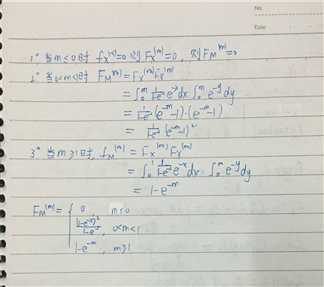 No.
Date
1° 当m<0时 fx(m)=0 则 Fx(m)=0, 则 FM(m)=0
2° 当0<m<1时 FM(m)=Fx(m)FY(m)
=∫₀ᵐ 1/(1-e⁻¹) e⁻ˣdx ∫₀ᵐ e⁻ʸdy
= 1/(1-e⁻¹) (e⁻ᵐ-1)·(e⁻ᵐ-1)
= 1/(1-e⁻¹) (e⁻ᵐ-1)²
3° 当m≥1时, fM(m) = Fx(m) FY(m)
= ∫₀¹ 1/(1-e⁻¹) e⁻ˣdx · ∫₀ᵐ e⁻ʸdy
= 1-e⁻ᵐ
FM(m)= { 0 m≤0
(1-e⁻ᵐ)²/(1-e⁻¹), 0<m<1
1-e⁻ᵐ, m≥1